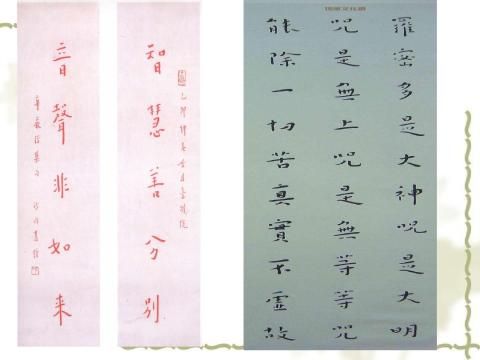 羅密多是大神呪是大明
呪是無上呪是無等等呪
能除一切苦真實不虛故
智慧善分別
音聲非如来